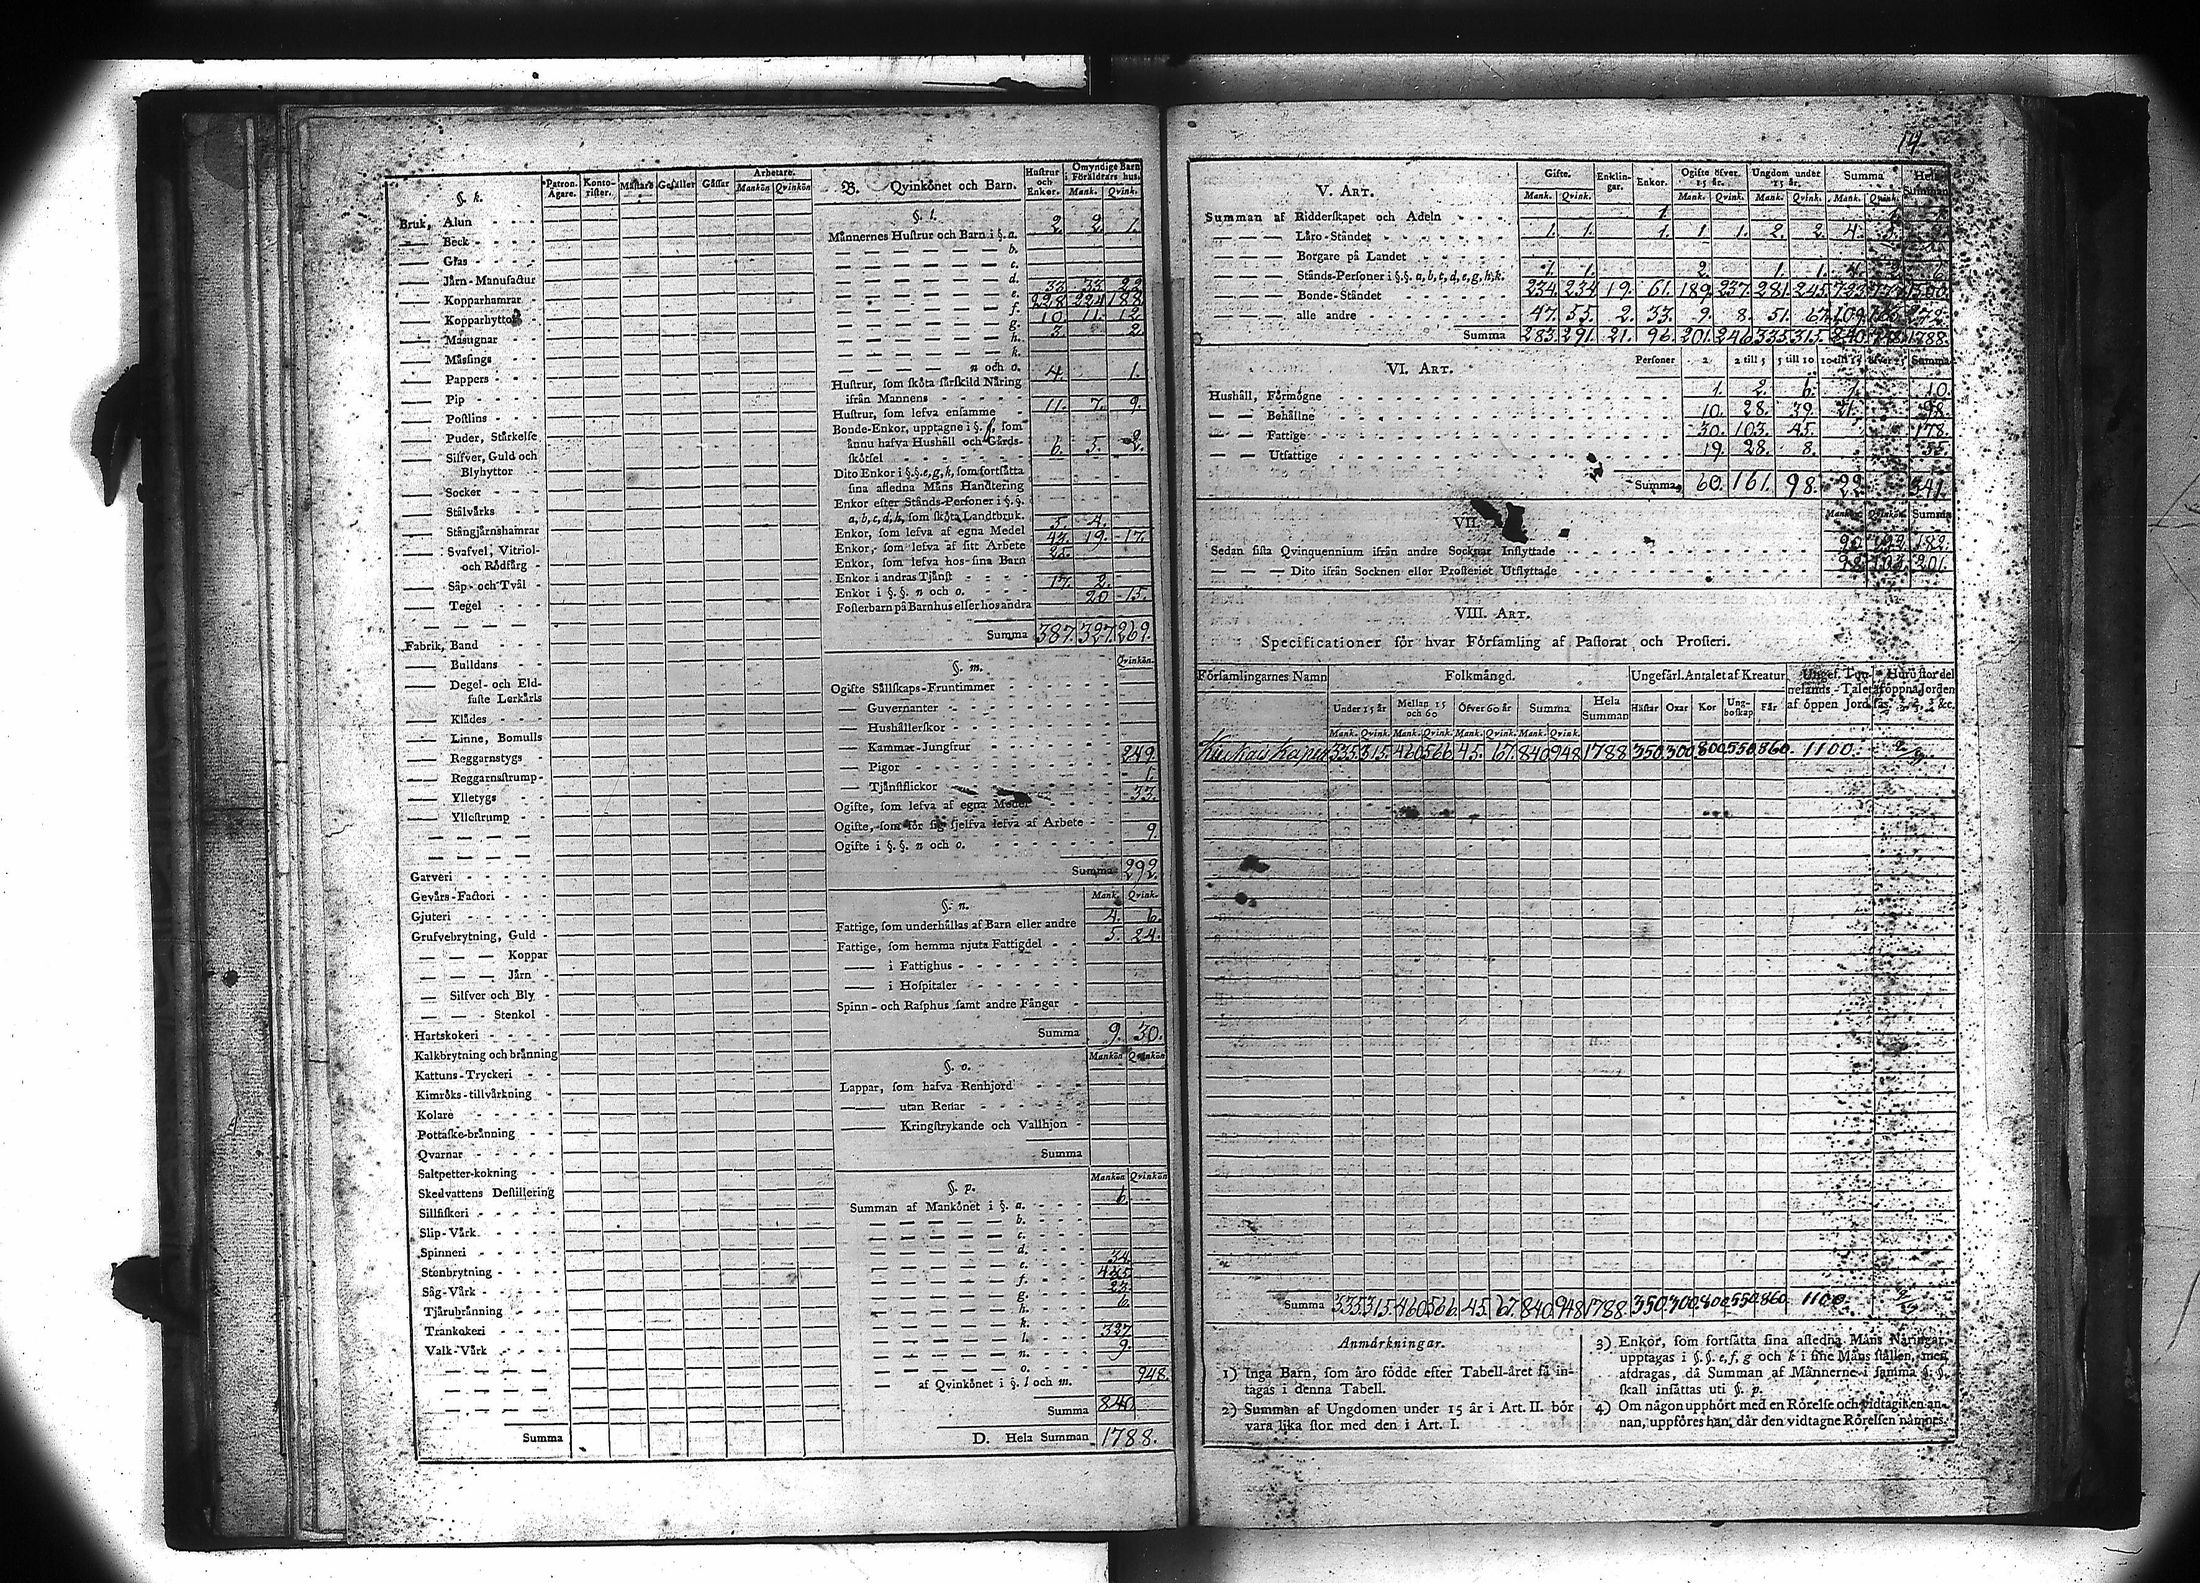 14.
§. k.
Patron. Ägare. Konto-rister. Mästare Gesäller Gåssar Arbetare. Mankön Qvinkön
Bruk, Alun
Beck
Glas
Järn-Manufactur
Kopparhamrar
Kopparhyttor
Masugnar
Mässings
Pappers
Pip
Postlins
Puder, Stårkelse
Silfver, Guld och
Blyhyttor
Socker
Stålvårks
Stångjårnshamrar
Svafvel, Vitriol-
och Rödfärg
Såp- och Tvål
Tegel
Fabrik, Band
Bulldans
Degel- och Eld-
faste Lerkärls
Klådes
Linne, Bomulls
Reggarnstygs
Reggarnsstrump
Ylletygs
Yllestrump
Garveri
Gevårs-Factori
Gjuteri
Grufvebrytning, Guld
Koppar
Jårn
Silfver och Bly
Stenkol
Hartskokeri
Kalkbrytning och brånning
Kattuns-Tryckeri
Kimröks-tillvårkning
Kolare
Pottaske-brånning
Qvarnar
Saltpetter-kokning
Skedvattens Destillering
Sillfiskeri
Slip-Vårk
Spinneri
Stenbrytning
Såg-Vårk
Tjårubrånning
Trankokeri
Valk-Vårk
Summa
B. Qvinkönet och Barn.
Hustrur och Enkor. Omyndige Barn i Föräldrars hus. Mank. Qvink.
§. l.
Männernes Hustrur och Barn i §. a. 2. 2. 1.
b.
c.
d.
e. 33 33 22
f. 228 224 188
g. 10 11 12
h. 3. 2
k.
n och o.
Hustrur, som sköta särskild Näring 4. 1.
ifrån Mannens
Hustrur, som lefva ensamme 11. 7. 9.
Bonde-Enkor, upptagne i §. f, som
ännu hafva Hushåll och Gårds- 6. 5. 2.
skötsel
Dito Enkor i §.§. e, g, k, som fortsätta
sina afledna Mäns Handtering
Enkor efter Stånds-Personer i §.§.
a, b, c, d, h, som sköta Landtbruk.
Enkor, som lefva af egna Medel 5. 4.
Enkor, som lefva af sitt Arbete 43. 19. 17.
Enkor, som lefva hos sina Barn
Enkor i andras Tjänst
Enkor i §. §. n och o. 17. 2.
Fosterbarn på Barnhus eller hos andra 20 15.
Summa 387. 327. 269.
§. m. Qvinkön.
Ogifte Sällskaps-Fruntimmer
Guvernanter
Hushållerskor
Kammar-Jungfrur
Pigor 249.
Tjänstflickor 1.
Ogifte, som lefva af egna Medel 33.
Ogifte, som för sig sjelfva lefva af Arbete
Ogifte i §. §. n och o. 9.
Summa 292.
§. n. Mank. Qvink.
Fattige, som underhållas af Barn eller andre 4. 6.
Fattige, som hemma njuta Fattigdel 5. 24.
i Fattighus
i Hospitaler
Spinn- och Rasphus samt andre Fångar
Summa 9. 30.
§. o. Mankön Qvinkön
Lappar, som hafva Renhjord
utan Renar
Kringstrykande och Vallhjon
Summa
§. p. Mankön Qvinkön
Summan af Mankönet i §. a. 6.
b.
c.
d.
e. 34.
f.
g. 23.
h. 6.
k.
l. 327.
n. 9.
o.
af Qvinkönet i §. l och m. 948.
Summa 840
D. Hela Summan 1788.
V. ART.
Gifte. Enklin-gar. Enkor. Ogifte öfver 15 år. Ungdom under 15 år. Summa Hela Summan
Mank. Qvink. Mank. Qvink. Mank. Qvink. Mank. Qvink.
Summan af Ridderskapet och Adeln 1. 1. 1.
Låro-Ståndet 1. 1. 1. 1. 1. 2. 2. 4. 5.
Borgare på Landet
Stånds-Personer i §.§. a, b, c, d, e, g, h, k. 1. 1. 2. 1. 1. 4. 2. 6.
Bonde-Ståndet 234. 234. 19. 61. 189. 237. 281. 245. 723. 1500.
alle andre 47. 55. 2. 33. 9. 8. 51. 67. 109. 163. 272.
Summa 283. 291. 21. 96. 201. 246. 335. 315. 840. 948. 1788.
VI. ART.
Personer 2 2 till 5 5 till 10 10 till 15 öfver 15 Summa
Hushåll, Förmögne 1. 2. 6. 1. 10.
Behållne 10. 28. 39. 21. 98.
Fattige 30. 103. 45. 178.
Utfattige 19. 28. 8. 55.
Summa 60. 161. 98. 22. 341.
VII.
Mankön Qvinkön Summa
Sedan sista Qvinquennium ifrån andre Socknar Inflyttade 90. 92 182.
Dito ifrån Socknen eller Prosteriet Utflyttade 98. 103. 201.
VIII. ART.
Specificationer för hvar Församling af Pastorat och Prosteri.
Församlingarnes Namn Folkmängd. Ungefärl. Antalet af Kreatur Ungef. Tun-nelands-Talet af öppen Jord Huru stor del af öppna Jorden
Under 15 år Mellan 15 och 60 Öfver 60 år Summa Hela Summan Hästar Oxar Kor Ung-boskap Får
Mank. Qvink. Mank. Qvink. Mank. Qvink. Mank. Qvink.
335. 315. 460 566 45. 67. 840 948 1788 350. 300. 800. 550. 860. 1100.
Summa 335. 315. 460 566. 45. 67. 840. 948 1788. 350. 300. 800. 550. 860. 1100.
Anmärkningar.
1) Inga Barn, som äro födde efter Tabell-året få in-
tagas i denna Tabell.
2) Summan af Ungdomen under 15 år i Art. II. bör
vara lika stor med den i Art. I.
3) Enkor, som fortsätta sina afledna Mäns Näringar,
upptagas i §. §. e, f, g och k i sine Mäns ställen, men
afdragas, då Summan af Männerne i samma §. §.
skall insättas uti §. p.
4) Om någon upphört med en Rörelse och vidtagit en an-
nan, uppföres han, där den vidtagne Rörelsen nämnes.